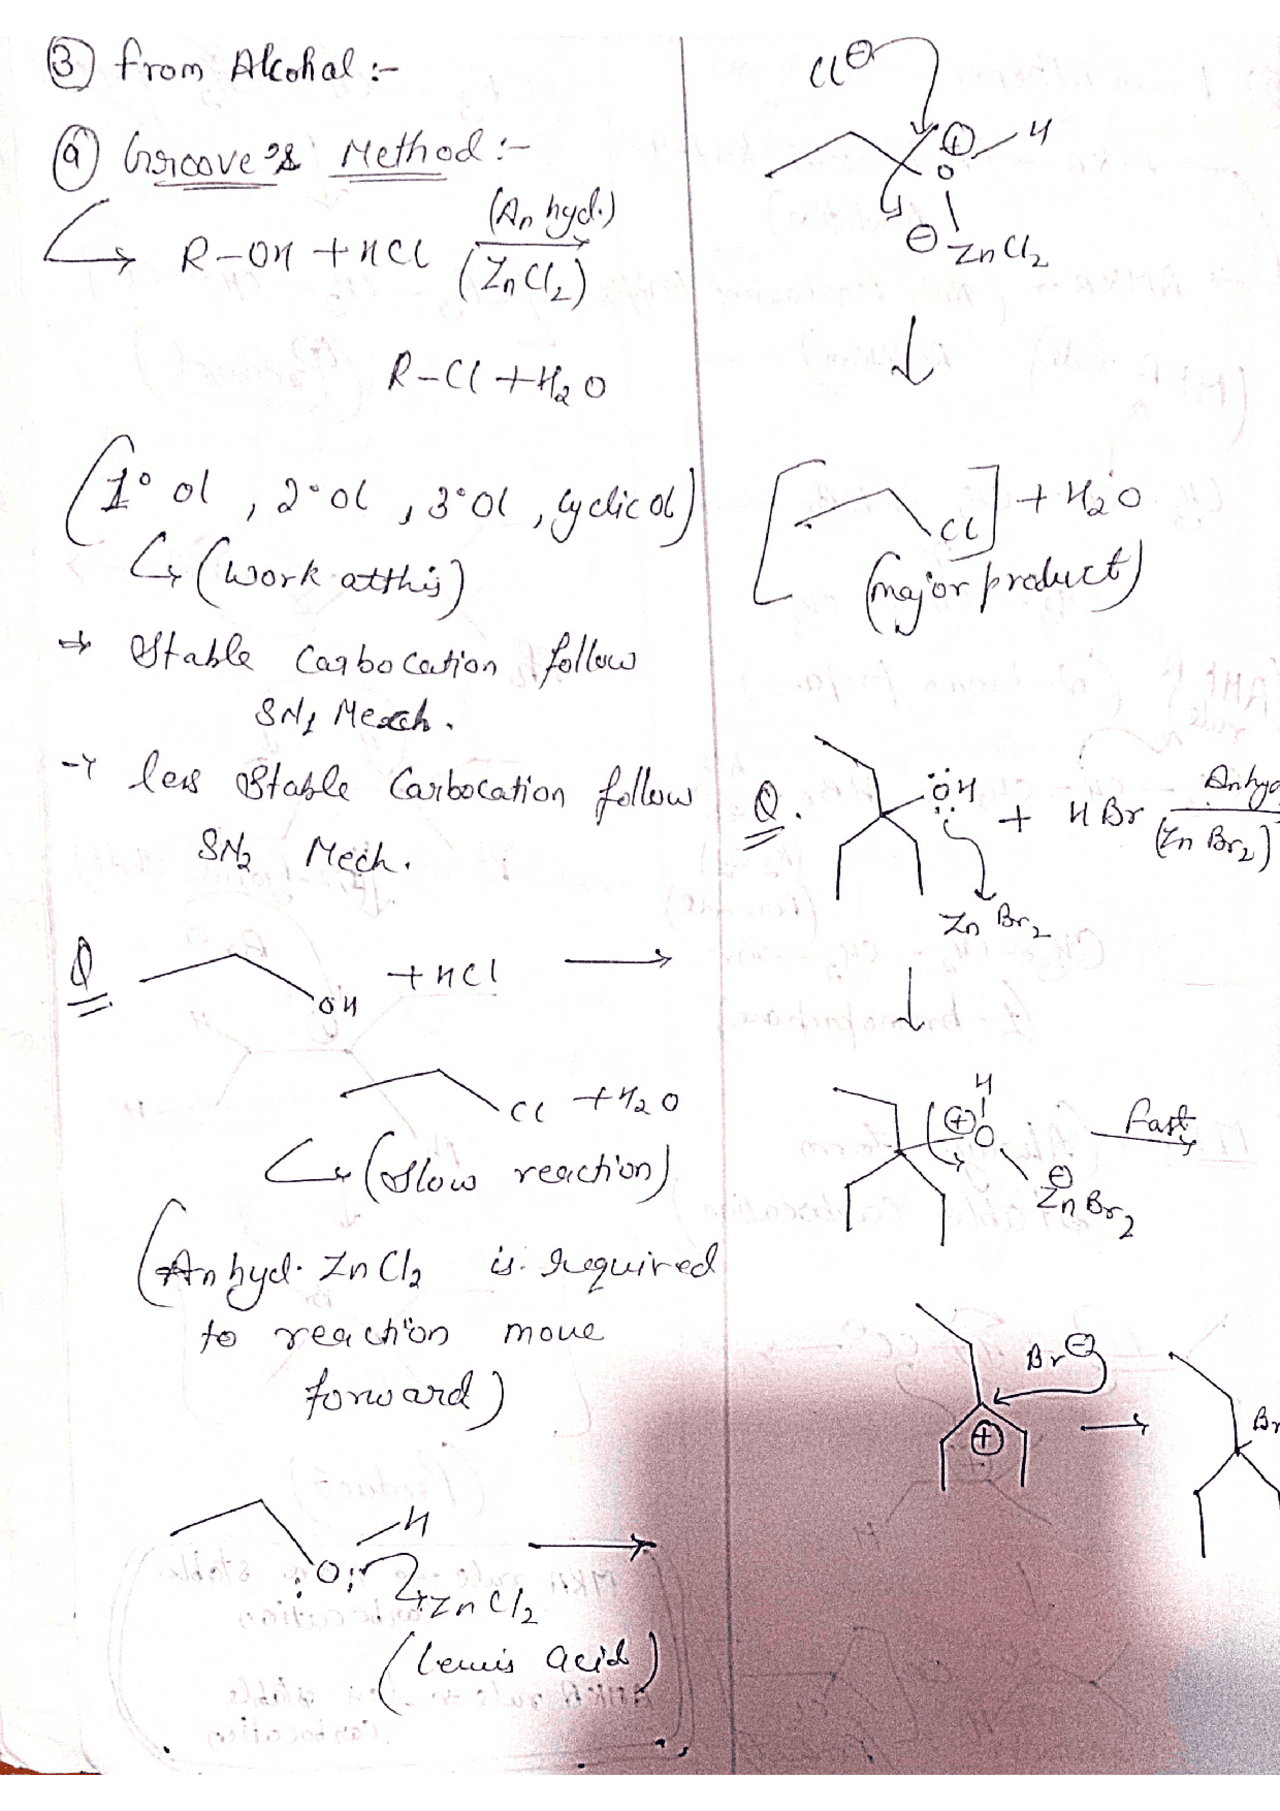 ③ from Alcohal :-
(a) Groove's Method :-
R-OH + HCl (Anhyd.) (ZnCl2)
R-Cl + H2O
(1° ol, 2° ol, 3° ol, cyclic ol)
(work at this)
→ Stable Carbocation follow
SN1 Mech.
→ less Stable Carbocation follow
SN2 Mech.
Q. OH + HCl →
Cl + H2O
(Slow reaction)
(Anhyd. ZnCl2 is required
to reaction move
forward)
H
:O: →
ZnCl2
(Lewis acid)
Cl⊖
⊕ H
O
⊖ ZnCl2
↓
Cl] + H2O
(major product)
Q. ÖH + HBr Anhyd (ZnBr2)
ZnBr2
↓
H
⊕ O Fast
⊖
ZnBr2
Br⊖
⊕ → Br